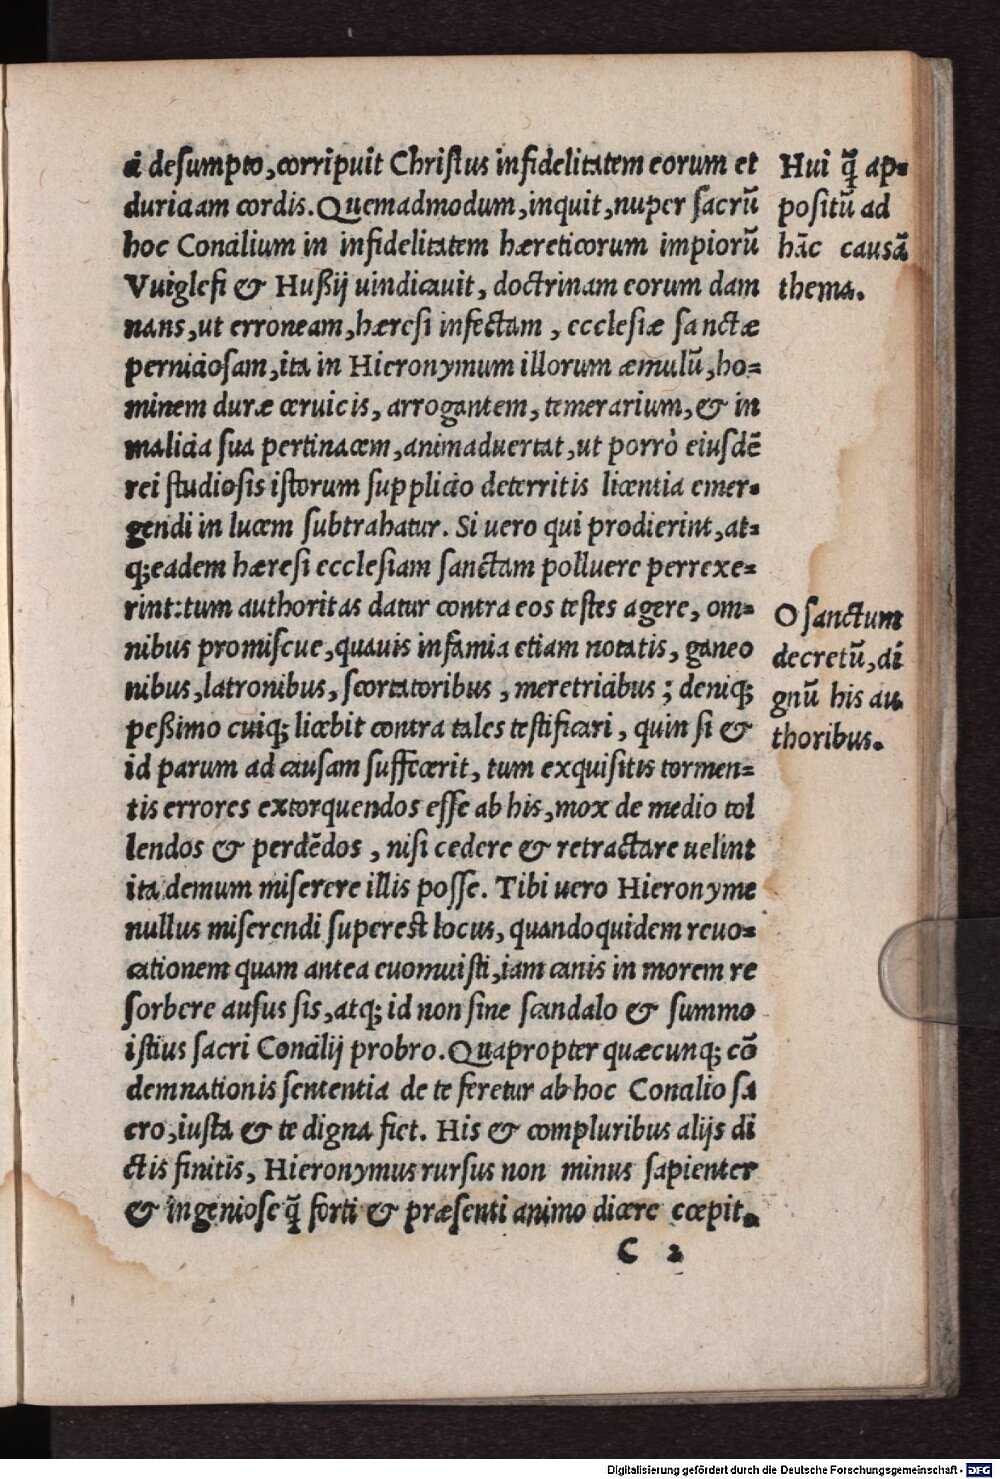 ci desumpto, corripuit Christus infidelitatem eorum et
duriciam cordis. Quemadmodum, inquit, nuper sacrũ
hoc Concilium in infidelitatem hæreticorum impiorũ
Vuiglefi & Hußij uindicauit, doctrinam eorum dam
nans, ut erroneam, hæresi infectam, ecclesiæ sanctæ
perniciosam, ita in Hieronymum illorum æmulũ, ho=
minem duræ ceruicis, arrogantem, temerarium, & in
malicia sua pertinacem, animaduertat, ut porrò eiusdẽ
rei studiosis istorum supplicio deterritis licentia emer=
gendi in lucem subtrahatur. Si uero qui prodierint, at=
q; eadem hæresi ecclesiam sanctam polluere perrexe=
rint: tum authoritas datur contra eos testes agere, om=
nibus promiscue, quauis infamia etiam notatis, ganeo
nibus, latronibus, scortatoribus, meretricibus; deniq;
peßimo cuiq; licebit contra tales testificari, quin si &
id parum ad causam suffecerit, tum exquisitis tormen=
tis errores extorquendos esse ab his, mox de medio tol
lendos & perdẽdos, nisi cedere & retractare uelint
ita demum miserere illis posse. Tibi uero Hieronyme
nullus miserendi superest locus, quandoquidem reuo=
cationem quam antea euomuisti, iam canis in morem re
sorbere ausus sis, atq; id non sine scandalo & summo
istius sacri Concilij probro. Quapropter quæcunq; cõ
demnationis sententia de te feretur ab hoc Concilio sa
cro, iusta & te digna fiet. His & compluribus alijs di
ctis finitis, Hieronymus rursus non minus sapienter
& ingeniose q̃ forti & præsenti animo dicere cœpit.
C 2
Hui q̃ ap=
positũ ad
hãc causã
thema.
O sanctum
decretũ, di
gnũ his au
thoribus.
Digitalisierung gefördert durch die Deutsche Forschungsgemeinschaft - DFG